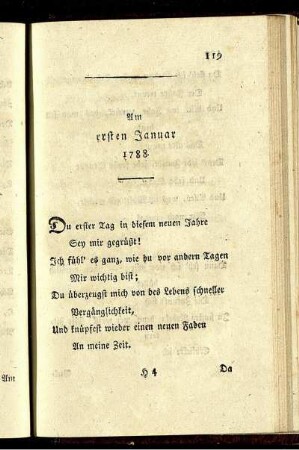 119
Am
ersten Januar
1788.
Du erster Tag in diesem neuen Jahre
Sey mir gegrüßt!
Ich fühl' es ganz, wie du vor andern Tagen
Mir wichtig bist;
Du überzeugst mich von des Lebens schneller
Vergänglichkeit,
Und knüpfest wieder einen neuen Faden
An meine Zeit.
H 4 Da
Am